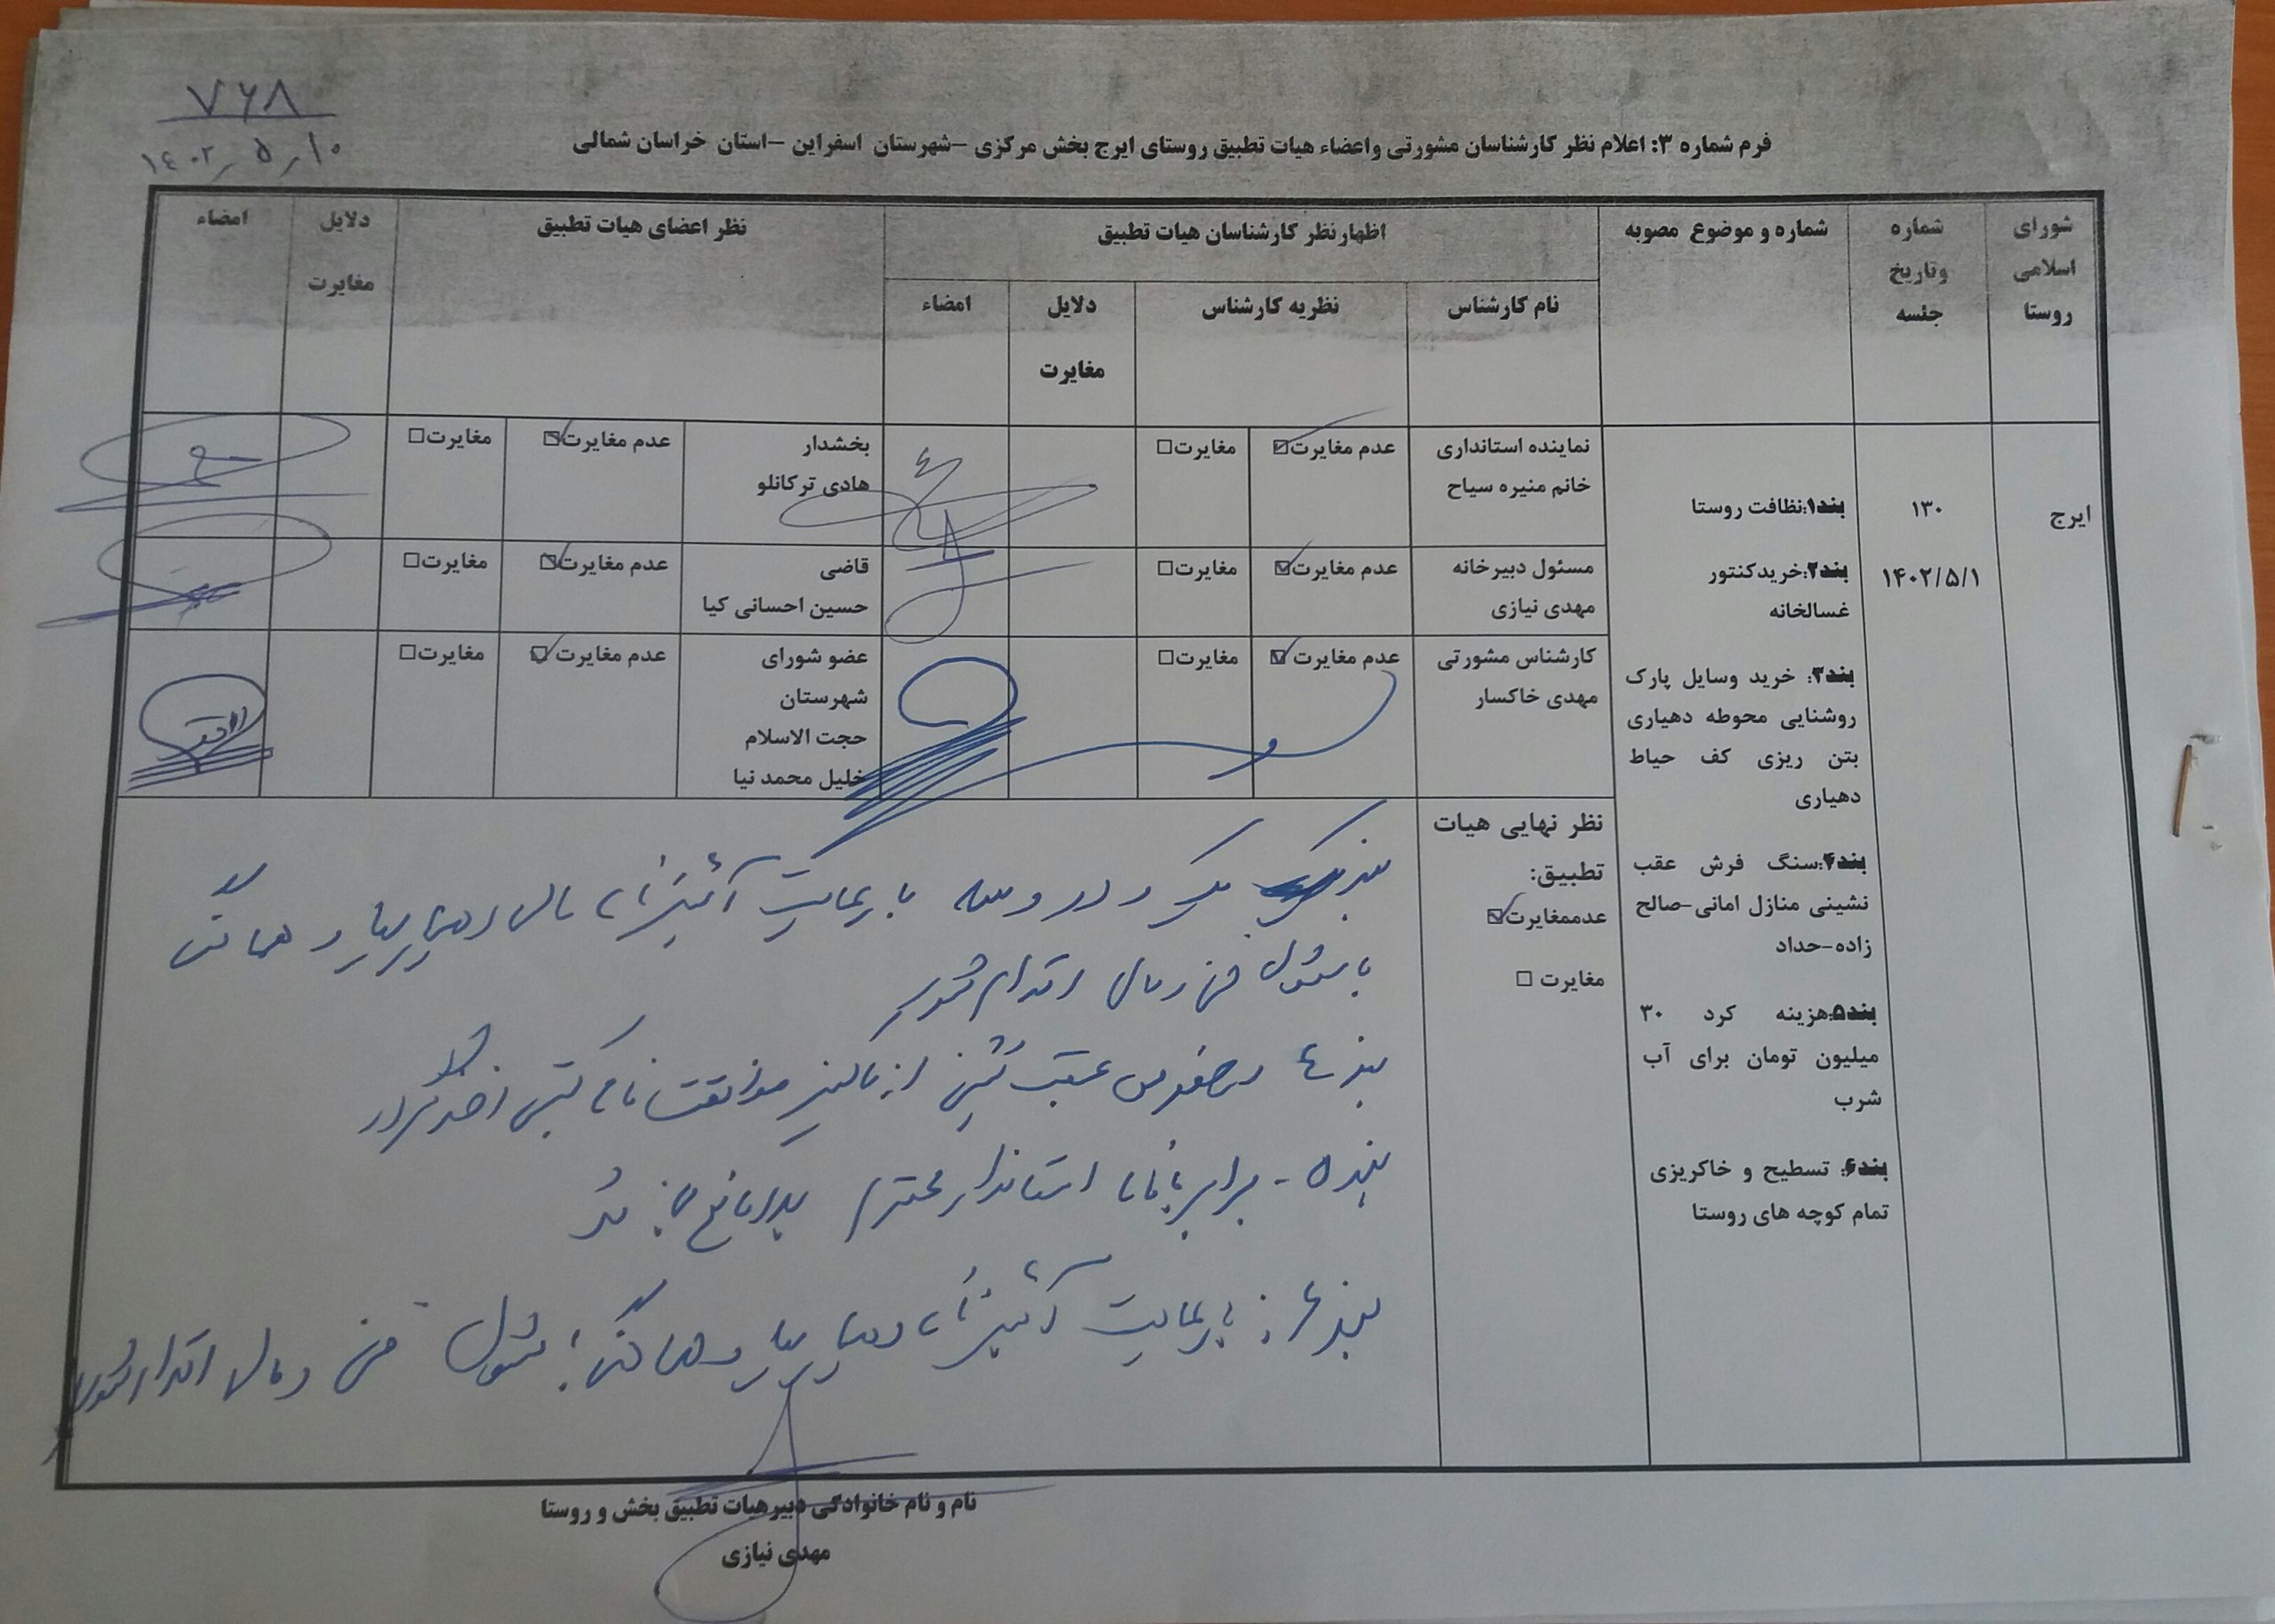 ۷۶۸
۱۴۰۲/۵/۱۰
فرم شماره ۳: اعلام نظر کارشناسان مشورتی واعضاء هیات تطبیق روستای ایرج بخش مرکزی –شهرستان اسفراین –استان خراسان شمالی
شورای اسلامی روستا
شماره وتاریخ جلسه
شماره و موضوع مصوبه
اظهارنظر کارشناسان هیات تطبیق
نظر اعضای هیات تطبیق
دلایل مغایرت
امضاء
نام کارشناس
نظریه کارشناس
دلایل مغایرت
امضاء
ایرج
۱۳۰
۱۴۰۲/۵/۱
بند۱:نظافت روستا
بند۲:خریدکنتور
غسالخانه
بند۳: خرید وسایل پارک
روشنایی محوطه دهیاری
بتن ریزی کف حیاط
دهیاری
بند۴:سنگ فرش عقب
نشینی منازل امانی-صالح
زاده-حداد
بند۵:هزینه کرد ۳۰
میلیون تومان برای آب
شرب
بند۶: تسطیح و خاکریزی
تمام کوچه های روستا
نماینده استانداری
خانم منیره سیاح
عدم مغایرت☑
مغایرت☐
بخشدار
هادی ترکانلو
عدم مغایرت☑
مغایرت☐
مسئول دبیرخانه
مهدی نیازی
عدم مغایرت☑
مغایرت☐
قاضی
حسین احسانی کیا
عدم مغایرت☑
مغایرت☐
کارشناس مشورتی
مهدی خاکسار
عدم مغایرت☑
مغایرت☐
عضو شورای
شهرستان
حجت الاسلام
خلیل محمد نیا
عدم مغایرت☑
مغایرت☐
نظر نهایی هیات
تطبیق:
عدممغایرت☑
مغایرت ☐
بند یک و دو و سه با رعایت آئین نامه مالی دهیاریها و هماهنگی
با مسئول فنی و مالی اقدام شود
بند ۴ درخصوص عقب نشینی از مالکین موافقت نامه کتبی اخذ گردد
بند ۵ - برابر نامه استاندار محترم بلامانع می باشد
بند ۶: با رعایت آئین نامه دهیاریها و هماهنگی مسئول فنی و مالی اقدام شود
نام و نام خانوادگی دبیرهیات تطبیق بخش و روستا
مهدی نیازی